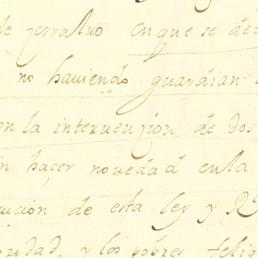 de cerralvo en que se de
no haviendo guardian
on la interuençion de dos
in haçer novedad en la
ucion de esta ley y RE
oridad, y los pobres feliz